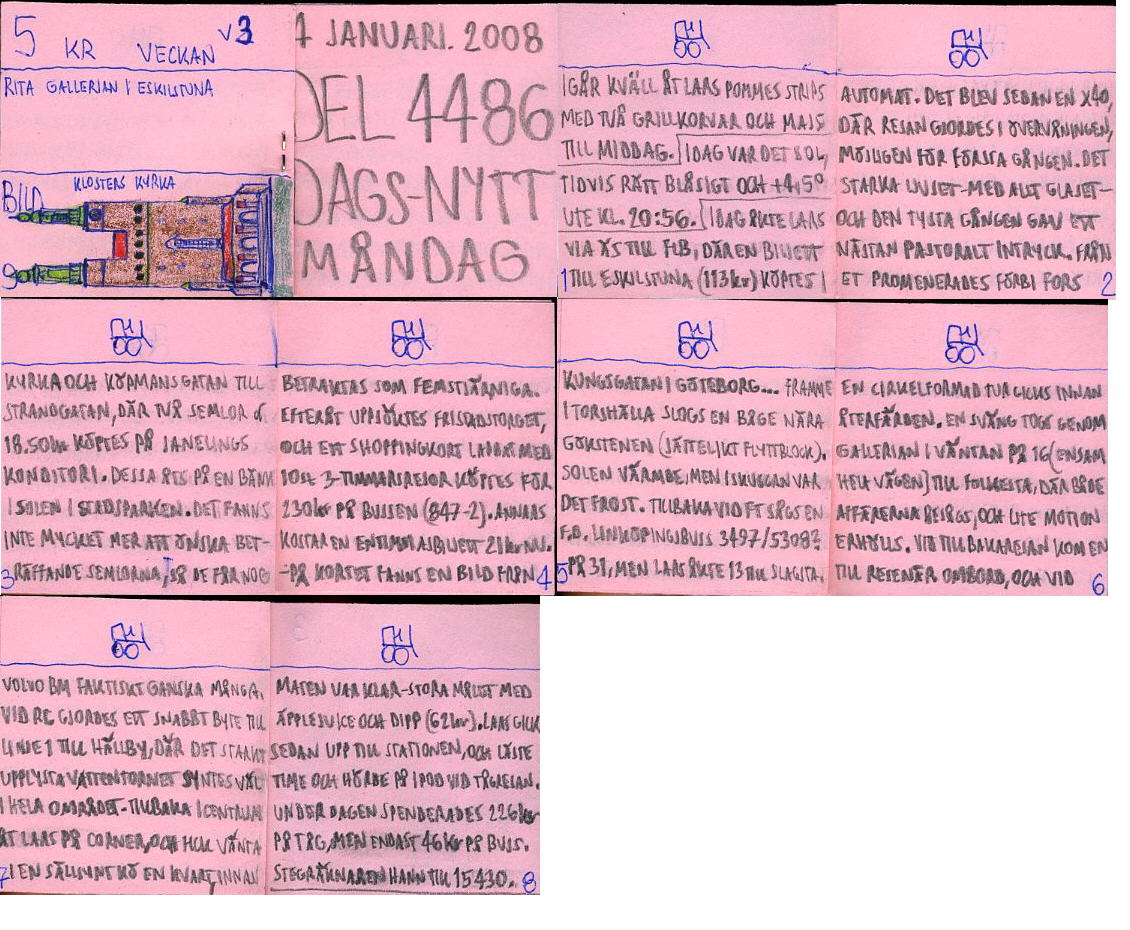 5 KR VECKAN v3
RITA GALLERIAN I ESKILSTUNA
BILD
KLOSTERS KYRKA
9
7 JANUARI. 2008
DEL 4486
DAGS-NYTT
MÅNDAG
IGÅR KVÄLL ÅT LARS POMMES STRIPS
MED TVÅ GRILLKORVAR OCH MAJS
TILL MIDDAG. IDAG VAR DET SOL,
TIDVIS RÄTT BLÅSIGT OCH +4,5°
UTE KL. 20:56. IDAG ÅKTE LARS
VIA ÄS TILL FLB, DÄR EN BILJETT
1 TILL ESKILSTUNA (113kr) KÖPTES I
AUTOMAT. DET BLEV SEDAN EN X40,
DÄR RESAN GJORDES I ÖVERVÅNINGEN,
MÖJLIGEN FÖR FÖRSTA GÅNGEN. DET
STARKA LJUSET-MED ALLT GLASET-
OCH DEN TYSTA GÅNGEN GAV ETT
NÄSTAN PASTORALT INTRYCK. FRÅN
ET PROMENERADES FÖRBI FORS 2
KYRKA OCH KÖPMANSGATAN TILL
STRANDGATAN, DÄR TVÅ SEMLOR á
18.50kr KÖPTES PÅ JANELINGS
KONDITORI. DESSA ÅTS PÅ EN BÄNK
I SOLEN I STADSPARKEN. DET FANNS
INTE MYCKET MER ATT ÖNSKA BET-
3 RÄFFANDE SEMLORNA, SÅ DE FÅR NOG
BETRAKTAS SOM FEMSTJÄRNIGA.
EFTERÅT UPPSÖKTES FRISTADSTORGET,
OCH ETT SHOPPINGKORT LADDAT MED
10st 3-TIMMARSRESOR KÖPTES FÖR
230kr PÅ BUSSEN (847-2). ANNARS
KOSTAR EN ENTIMMASBILJETT 21kr NU.
-PÅ KORTET FANNS EN BILD FRÅN 4
KUNGSGATAN I GÖTEBORG... FRAMME
I TORSHÄLLA SLOGS EN BÅGE NÄRA
GÖKSTENEN (JÄTTELIKT FLYTTBLOCK).
SOLEN VÄRMDE, MEN I SKUGGAN VAR
DET FROST. TILLBAKA VID FT SÅGS EN
F.D. LINKÖPINGSBUSS 3497/5308?
5 PÅ 31, MEN LARS ÅKTE 13 TILL SLAGSTA.
EN CIRKELFORMAD TUR GICKS INNAN
ÅTERFÄRDEN. EN SVÄNG TOGS GENOM
GALLERIAN I VÄNTAN PÅ 16 (ENSAM
HELA VÄGEN) TILL FOLKESTA, DÄR BÅDE
AFFÄRERNA BESÅGS, OCH LITE MOTION
ERHÖLLS. VID TILLBAKARESAN KOM EN
TILL RESENÄR OMBORD, OCH VID 6
VOLVO BM FAKTISKT GANSKA MÅNGA.
VID RC GJORDES ETT SNABBT BYTE TILL
LINJE 1 TILL HÄLLBY, DÄR DET STARKT
UPPLYSTA VATTENTORNET SYNTES VÄL
I HELA OMRÅDET. TILLBAKA I CENTRUM
ÅT LARS PÅ CORNER, OCH FICK VÄNTA
7 I EN SÄLLSYNT KÖ EN KVART, INNAN
MATEN VAR KLAR-STORA MÅLET MED
ÄPPLEJUICE OCH DIPP (62kr). LARS GICK
SEDAN UPP TILL STATIONEN, OCH LÄSTE
TIME OCH HÖRDE PÅ IPOD VID TÅGRESAN.
UNDER DAGEN SPENDERADES 226kr
PÅ TÅG, MEN ENDAST 46kr PÅ BUSS.
STEGRÄKNAREN HANN TILL 15430. 8